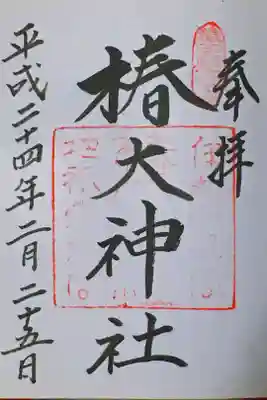 奉拝
椿大神社
平成二十四年二月二十五日